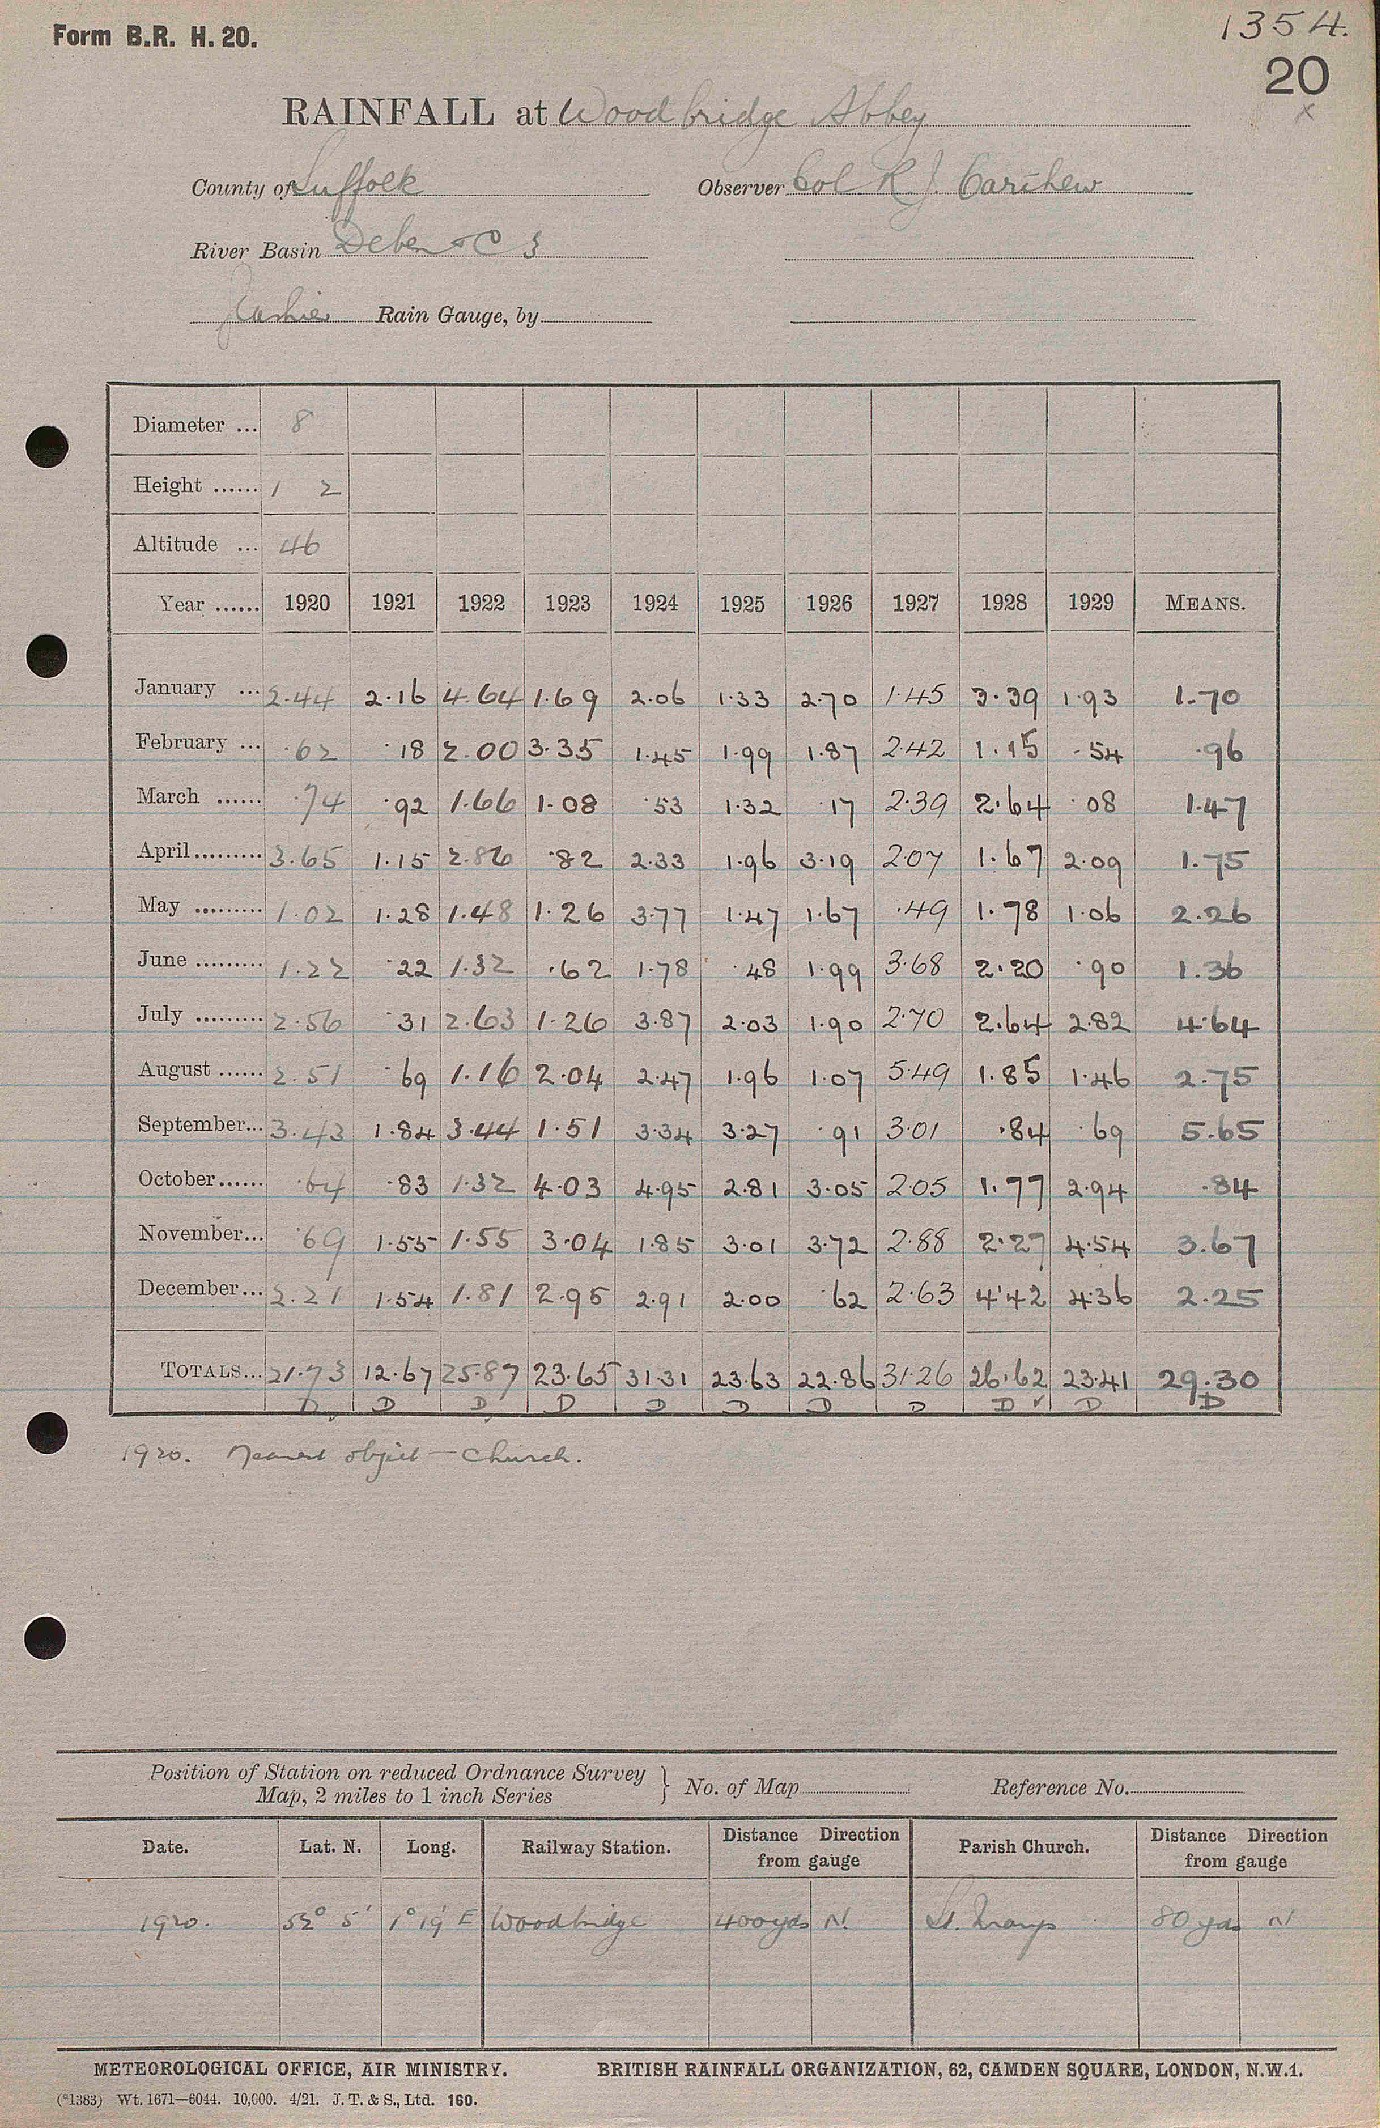 Form B.R. H. 20.
1354.
20
x
RAINFALL at Woodbridge Abbey
County of Suffolk Observer Col R. J. Carthew
River Basin Deben &
Rain Gauge, by
Diameter ... 8
Height ...... 1 2
Altitude ... 46
Year ...... 1920 1921 1922 1923 1924 1925 1926 1927 1928 1929 MEANS.
January ... 2.44 2.16 4.64 1.69 2.06 1.33 2.70 1.45 3.39 1.93 1.70
February ... .62 .18 2.00 3.35 1.45 1.99 1.87 2.42 1.15 .54 .96
March ...... .74 .92 1.66 1.08 .53 1.32 .17 2.39 2.64 .08 1.47
April ......... 3.65 1.15 2.86 .82 2.33 1.96 3.19 2.07 1.67 2.09 1.75
May ......... 1.02 1.28 1.48 1.26 3.77 1.47 1.67 .49 1.78 1.06 2.26
June ......... 1.22 .22 1.32 .62 1.78 .48 1.99 3.68 2.20 .90 1.36
July ......... 2.56 .31 2.63 1.26 3.87 2.03 1.90 2.70 2.64 2.82 4.64
August ...... 2.51 .69 1.16 2.04 2.47 1.96 1.07 5.49 1.85 1.46 2.75
September... 3.43 1.84 3.44 1.51 3.34 3.27 .91 3.01 .84 .69 5.65
October...... .64 .83 1.32 4.03 4.95 2.81 3.05 2.05 1.77 2.94 .84
November... .69 1.55 1.55 3.04 1.85 3.01 3.72 2.88 2.27 4.54 3.67
December... 2.21 1.54 1.81 2.95 2.91 2.00 .62 2.63 4.42 4.36 2.25
TOTALS... 21.73 12.67 25.87 23.65 31.31 23.63 22.86 31.26 26.62 23.41 29.30
D D D D D D D D D D D
1920. Nearest object - Church.
Position of Station on reduced Ordnance Survey
Map, 2 miles to 1 inch Series } No. of Map Reference No.
Date. Lat. N. Long. Railway Station. Distance Direction from gauge Parish Church. Distance Direction from gauge
1920. 52° 5' 1° 19' E Woodbridge 400 yds N. St. Marys 80 yds N
METEOROLOGICAL OFFICE, AIR MINISTRY. BRITISH RAINFALL ORGANIZATION, 62, CAMDEN SQUARE, LONDON, N.W.1.
(*1383) Wt. 1671—6044. 10,000. 4/21. J. T. & S., Ltd. 160.